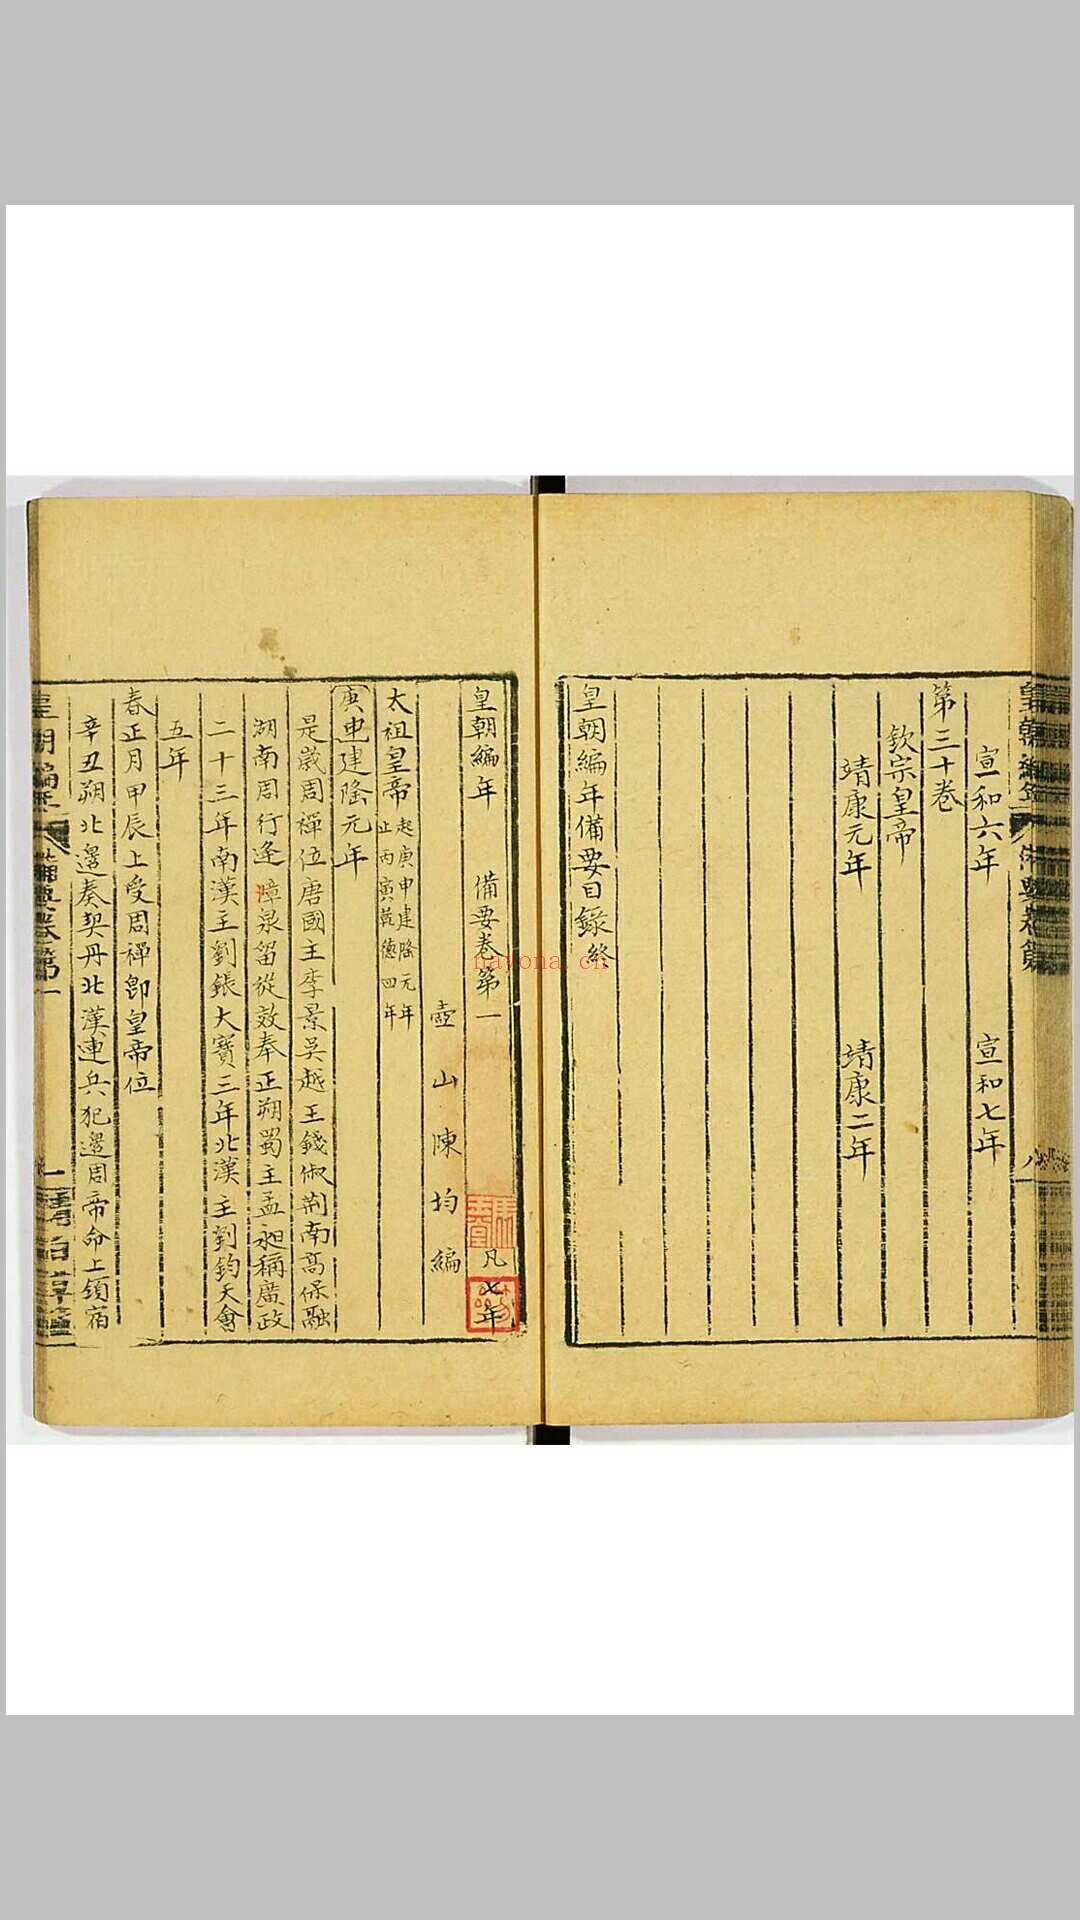 宣和六年 宣和七年
第三十卷
欽宗皇帝
靖康元年 靖康二年
皇朝編年備要目錄終
皇朝編年 備要卷第一 凡七年
壺山陳均編
太祖皇帝 起庚申建隆元年
止丙寅乾德四年
庚申建隆元年
是歲周禪位唐國主李景吳越王錢俶荆南高保融
湖南周行逢漳泉留從效奉正朔蜀主孟昶稱廣政
二十三年南漢主劉鋹大寶三年北漢主劉鈞天會
五年
春正月甲辰上受周禪卽皇帝位
辛丑朔北邊奏契丹北漢連兵犯邊周帝命上領宿
nayona.cn